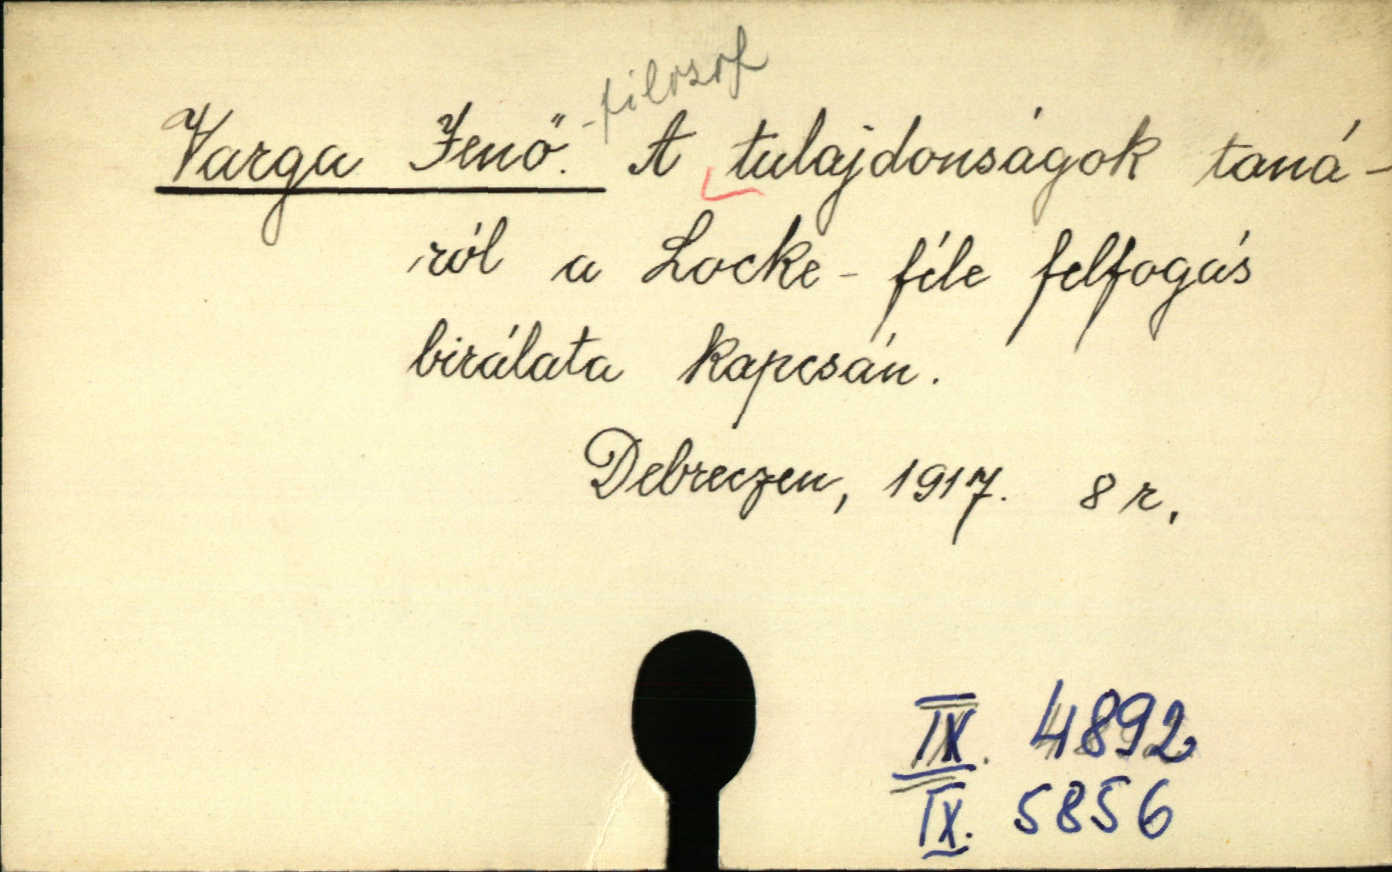 -filozof
Varga Jenő. A tulajdonságok taná-
ról a Locke-féle felfogás
birálata kapcsán.
Debreczen, 1917. 8 r.
IX. 4892
IX. 5856